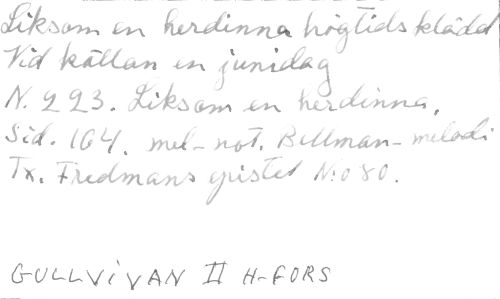 Liksom en herdinna högtidsklädd
Vid källan en junidag
N. 223. Liksom en herdinna,
Sid. 164. mel-not. Bellman-melodi
Tx. Fredmans epistel No 80.
GULLVIVAN II H-FORS